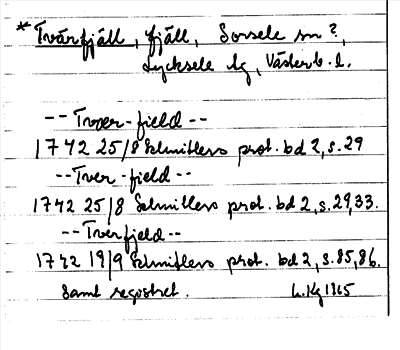 * Tvärfjäll, fjäll, Sorsele sn?,
Lycksele lg, Västerb. l.
-- Tvær-field --
1742 25/8 Schnitlers prot. bd 2, s. 29
-- Tver-field --
1742 25/8 Schnitlers prot. bd 2, s. 29, 33.
-- Tverfjeld --
1742 19/9 Schnitlers prot. bd 2, s. 85, 86.
Samt registret.